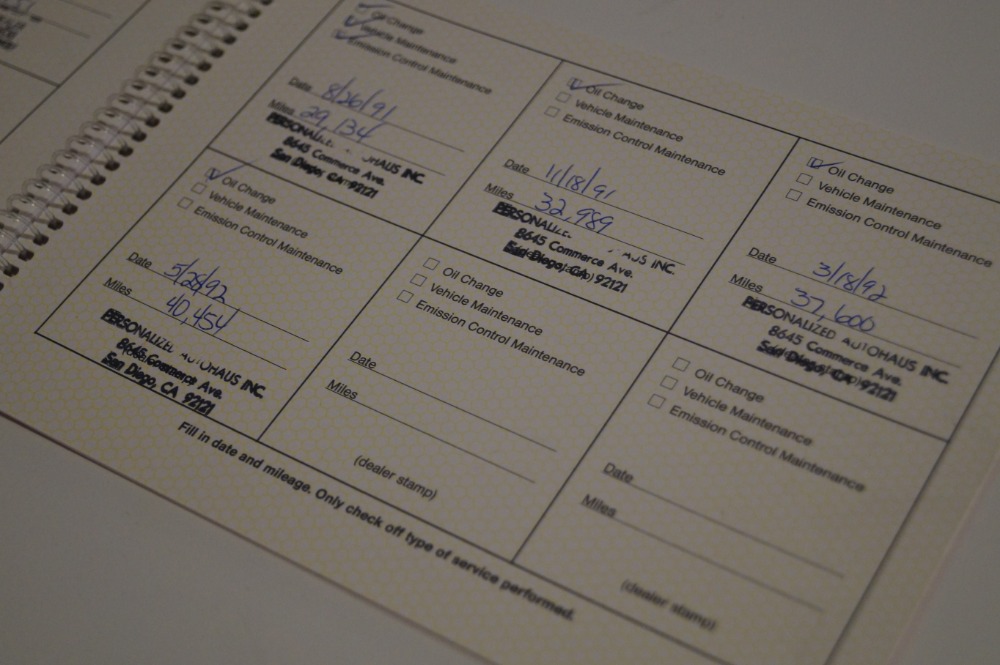 Oil Change
Vehicle Maintenance
Emission Control Maintenance
Date 8/26/91
Miles 29,134
PERSONALIZ OHAUS INC.
8645 Commerce Ave.
San Diego, CA 92121
Oil Change
Vehicle Maintenance
Emission Control Maintenance
Date 11/18/91
Miles 32,989
PERSONALIZ AUS INC.
8645 Commerce Ave.
San Diego, CA 92121
Oil Change
Vehicle Maintenance
Emission Control Maintenance
Date 3/18/92
Miles 37,600
PERSONALIZED AUTOHAUS INC.
8645 Commerce Ave.
San Diego, CA 92121
Oil Change
Vehicle Maintenance
Emission Control Maintenance
Date 5/28/92
Miles 40,454
PERSONALIZED AUTOHAUS INC.
8645 Commerce Ave.
San Diego, CA 92121
Oil Change
Vehicle Maintenance
Emission Control Maintenance
Date
Miles
(dealer stamp)
Oil Change
Vehicle Maintenance
Emission Control Maintenance
Date
Miles
(dealer stamp)
Fill in date and mileage. Only check off type of service performed.